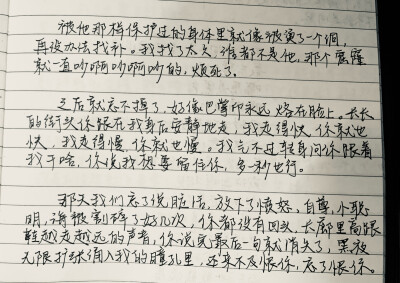 被他那样保护过的身体里就像被烫了一个洞,
再没办法找补。我找了太久,谁都不是他,那个窟窿
就一直吵啊吵啊吵的,烦死了。
之后就忘不掉了,好像巴掌印永远烙在脸上。长长
的街头你跟在我身后安静地走,我走得快,你就也
快,我走得慢,你就也慢。我气不过转身问你跟着
我干啥,你说我想要留住你,多一秒也行。
那天我们忘了说脏话,放下了愤怒、自尊,小聪
明,
被割碎了好几次,你都没有回头,长廊里高跟
鞋越走越远的声音,你说完最后一句就消失了,黑
无限
球滴入我的瞳孔里,还来不及恨你,忘了恨你。